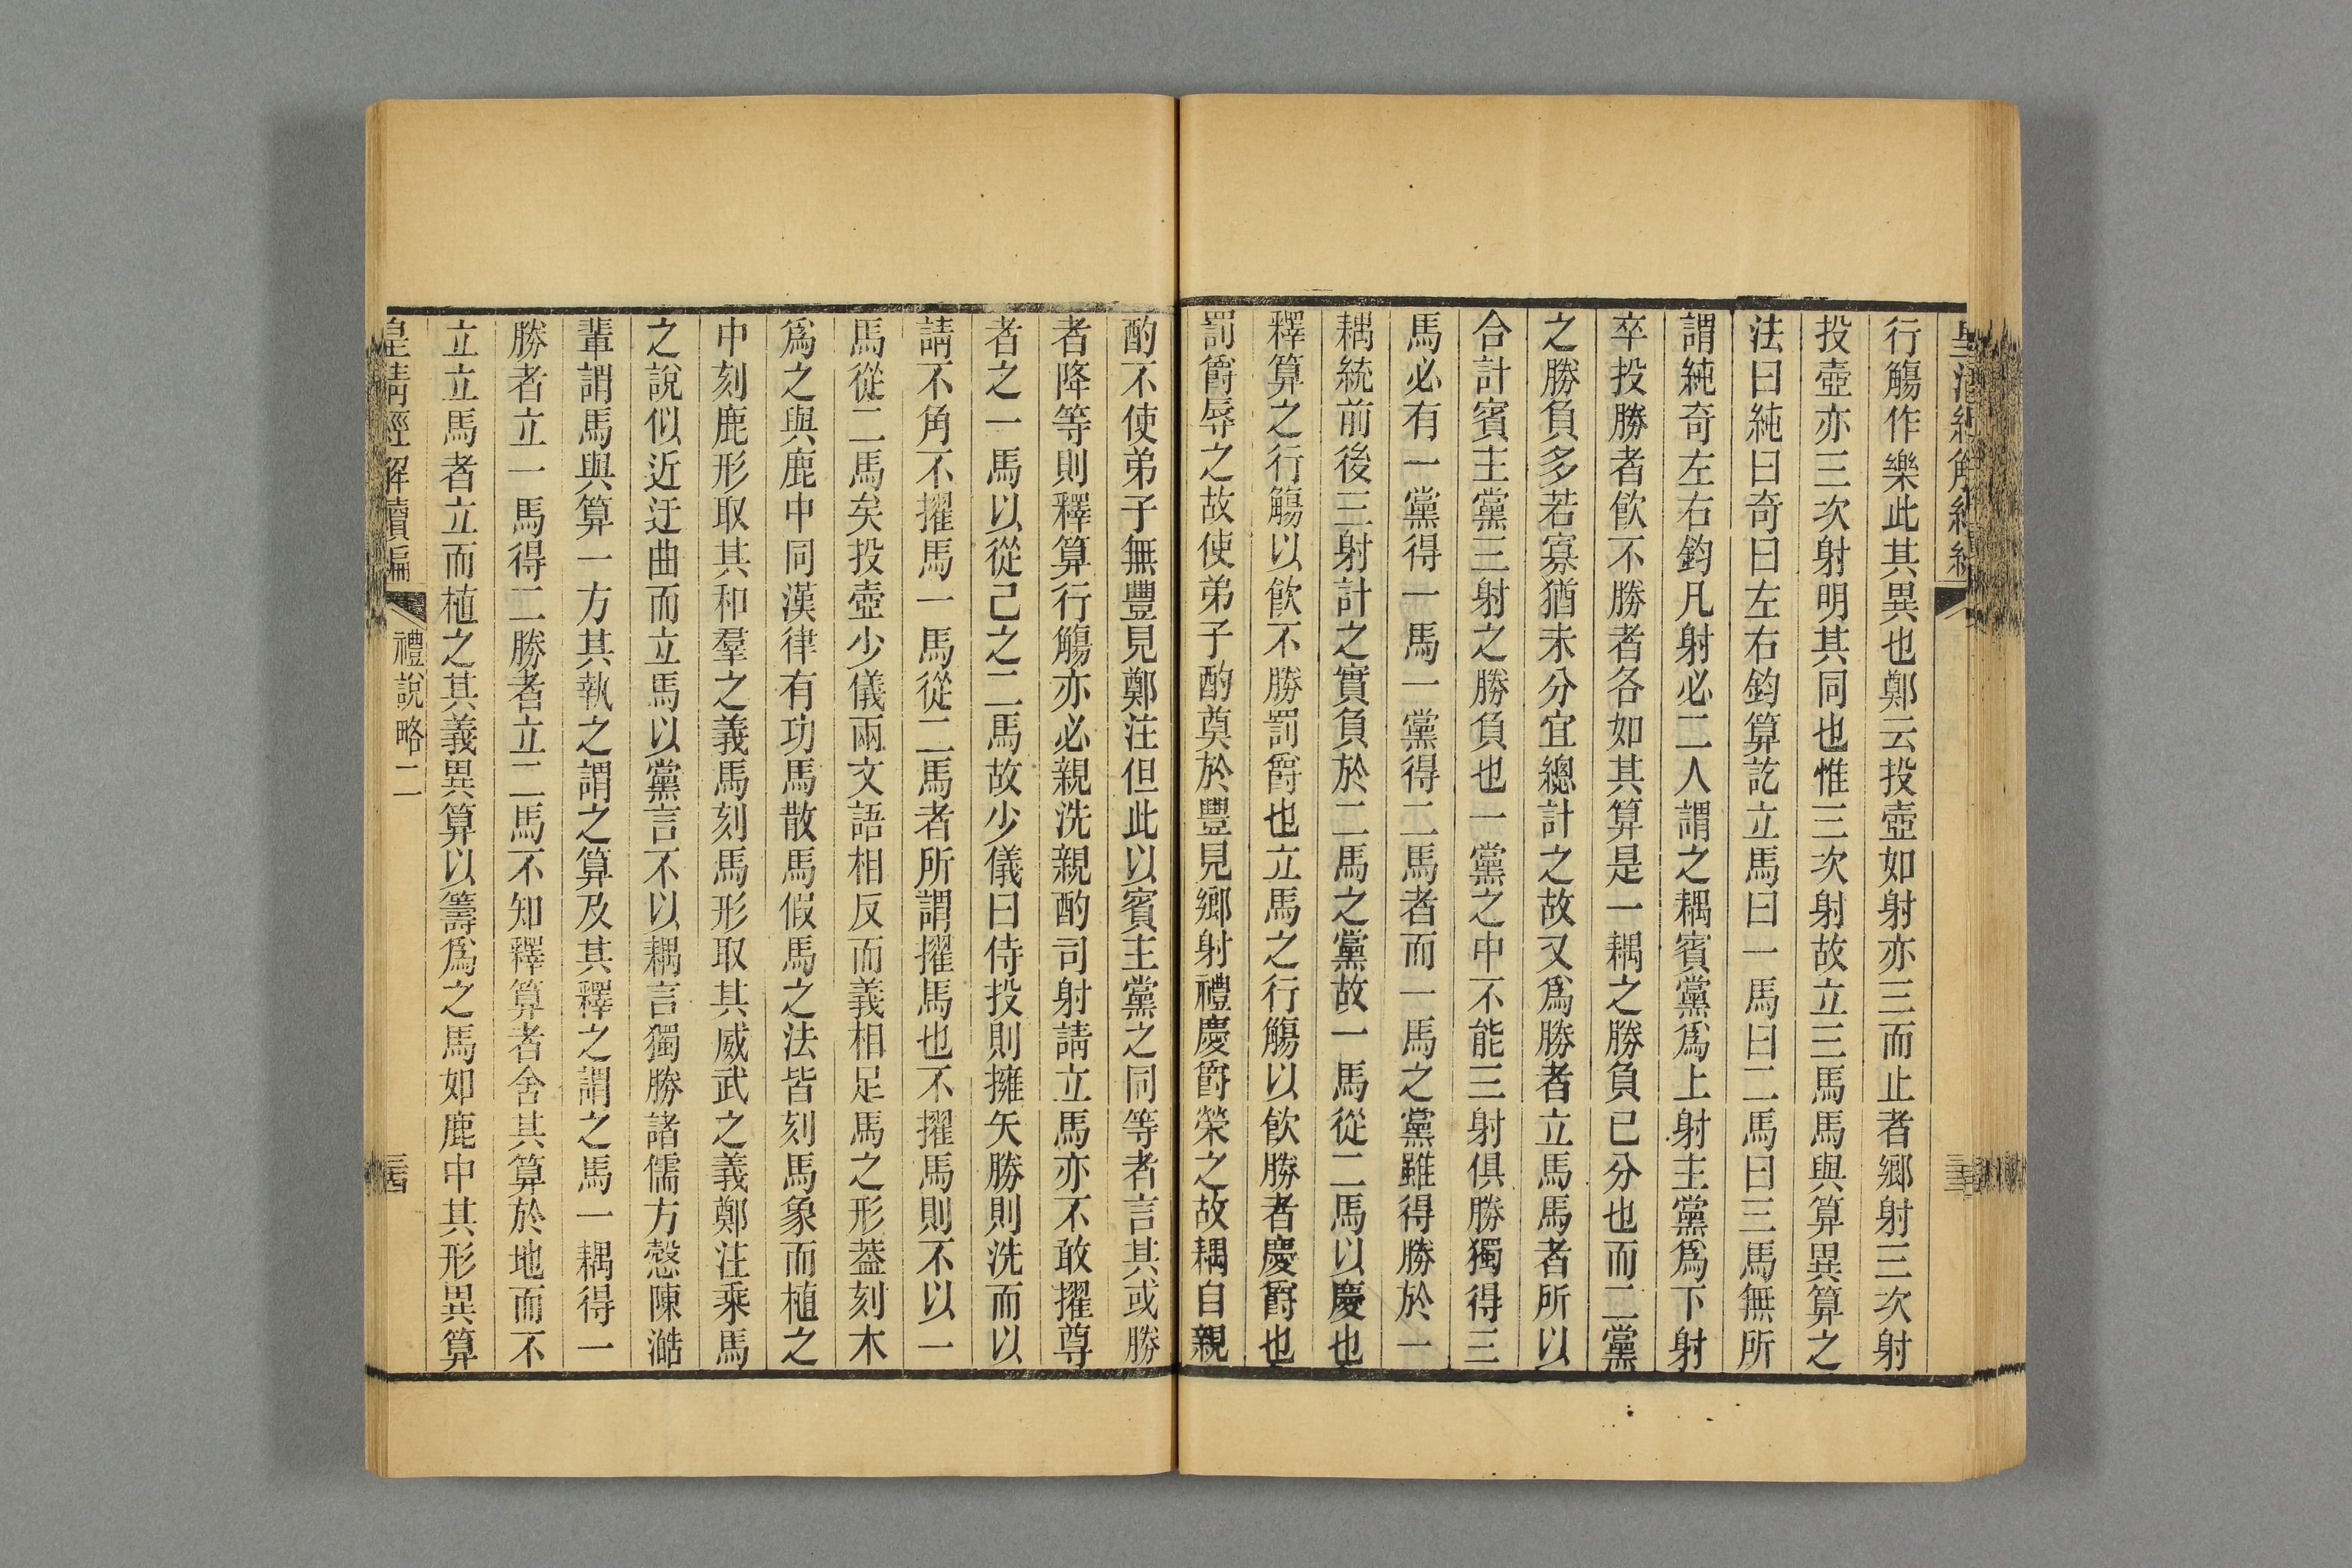 行觴作樂此其異也鄭云投壺如射亦三而止者鄉射三次射
投壺亦三次射明其同也惟三次射故立三馬馬與算異算之
法曰純曰奇曰左右鈞算訖立馬曰一馬曰二馬曰三馬無所
謂純奇左右鈞凡射必二人謂之耦賓黨爲上射主黨爲下射
卒投勝者飮不勝者各如其算是一耦之勝負已分也而二黨
之勝負多若寡猶未分宜總計之故又爲勝者立馬馬者所以
合計賓主黨三射之勝負也一黨之中不能三射俱勝獨得三
馬必有一黨得一馬一黨得二馬者而一馬之黨雖得勝於一
耦統前後三射計之實負於二馬之黨故一馬從二馬以慶也
釋算之行觴以飮不勝罰爵也立馬之行觴以飮勝者慶爵也
罰爵辱之故使弟子酌奠於豐見鄉射禮慶爵榮之故耦自親
酌不使弟子無豐見鄭注但此以賓主黨之同等者言其或勝
者降等則釋算行觴亦必親洗親酌司射請立馬亦不敢擢尊
者之一馬以從己之二馬故少儀曰侍投則擁矢勝則洗而以
請不角不擢馬一馬從二馬者所謂擢馬也不擢馬則不以一
馬從二馬矣投壺少儀兩文語相反而義相足馬之形蓋刻木
爲之與鹿中同漢律有功馬散馬假馬之法皆刻馬象而植之
中刻鹿形取其和羣之義馬刻馬形取其威武之義鄭注乘馬
之說似近迂曲而立馬以黨言不以耦言獨勝諸儒方慤陳澔
輩謂馬與算一方其執之謂之算及其釋之謂之馬一耦得一
勝者立一馬得二勝者立二馬不知釋算者舍其算於地而不
立立馬者立而植之其義異算以籌爲之馬如鹿中其形異算
皇淸經解續編 禮說略二 三四